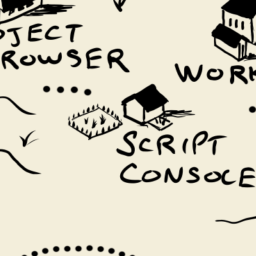 JECT
ROWSER
WORK
SCRIPT
CONSOLE